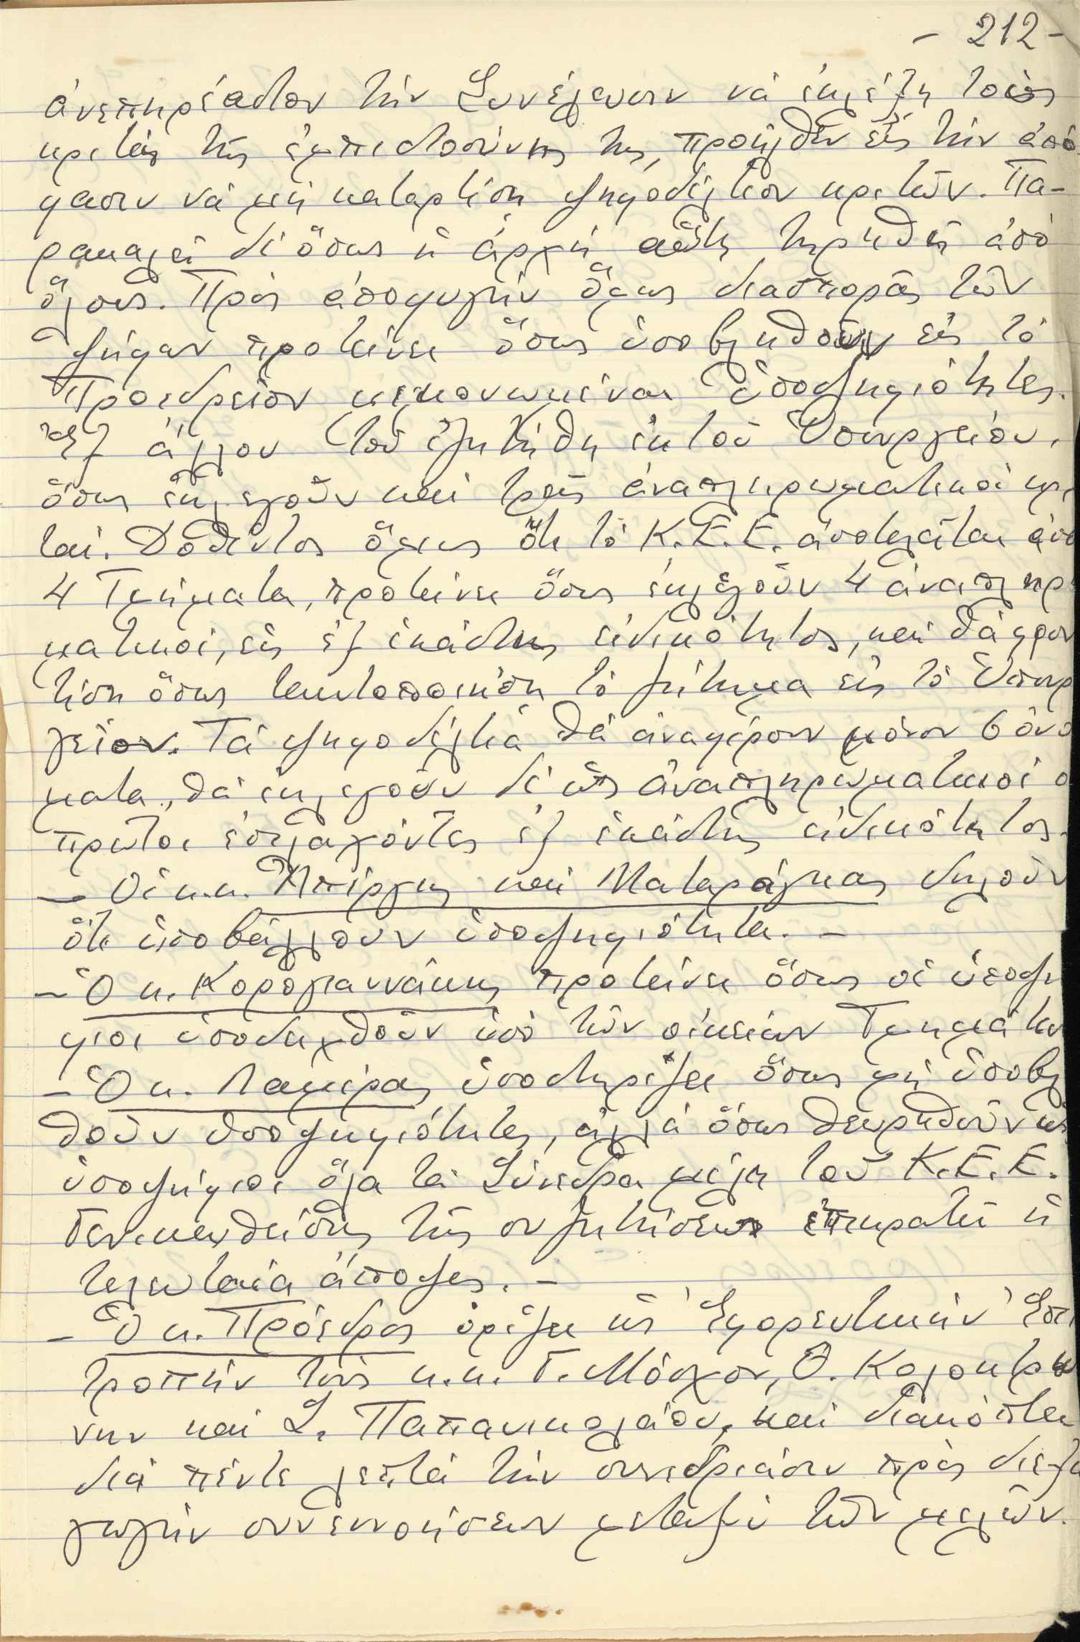 - 212 -
ἀνεπηρέαστον τήν Συνέλευσιν νά ἐκλέξη τούς
κριτάς τῆς ἐμπιστοσύνης της, προῆλθεν εἰς τήν ἀπό
φασιν νά μή καταρτίση ψηφοδέλτιον κριτῶν. Πα-
ρακαλεῖ δέ ὅπως ἡ ἀρχή αὕτη τηρηθῇ ἀπό
ὅλους. Πρός ἀποφυγήν ὅμως διασπορᾶς τῶν
ψήφων προτείνει ὅπως ὑποβληθοῦν εἰς τό
Προεδρεῖον μεμονωμέναι ὑποψηφιότητες.
Ἐξ ἄλλου τοῦ ἐζητήθη ἐκ τοῦ Ὑπουργείου,
ὅπως ἐκλεγοῦν καί τρεῖς ἀναπληρωματικοί κρι
ταί. Δοθέντος ὅμως ὅτι τό Κ.Ε.Ε. ἀποτελεῖται ἀπό
4 Τμήματα, προτείνει ὅπως ἐκλεγοῦν 4 ἀναπληρ
ματικοί, εἷς ἐξ ἑκάστης εἰδικότητος, καί θά φρον
τίση ὅπως τακτοποιήση τό ζήτημα εἰς τό Ὑπουρ
γεῖον. Τά ψηφοδέλτια θά ἀναφέρουν μόνον 6 ὀνό
ματα, θά ἐκλεγοῦν δέ ὡς ἀναπληρωματικοί ο
πρῶτοι ἐπιλαχόντες ἐξ ἑκάστης εἰδικότητος.
- Οἱ κ.κ. Μπίρλης καί Ματαράγκας δηλοῦν
ὅτι ὑποβάλλουν ὑποψηφιότητα. -
- Ὁ κ. Κορογιαννάκης προτείνει ὅπως οἱ ὑποψή
φιοι ὑποδειχθοῦν ὑπό τῶν οἰκείων Τμημάτων
- Ὁ κ. Λαμέρας ὑποστηρίζει ὅπως μή ὑποβλ
θοῦν ὑποψηφιότητες, ἀλλά ὅπως θεωρηθοῦν ὡς
ὑποψήφιοι ὅλα τά Σύνεδρα μέλη τοῦ Κ.Ε.Ε.
Γενικευθείσης τῆς συζητήσεως ἐπικρατεῖ ἡ
τελευταία ἄποψις. -
- Ὁ κ. Πρόεδρος ὁρίζει ὡς Ἐφορευτικήν Ἐπι
τροπήν τούς κ.κ. Γ. Μόσχον, Θ. Κολοκοτρώ
νην καί Σ. Παπανικολάου, καί διακόπτει
διά πέντε λεπτά τήν συνεδρίασιν πρός διεξα
γωγήν συνεννοήσεων μεταξύ τῶν μελῶν.